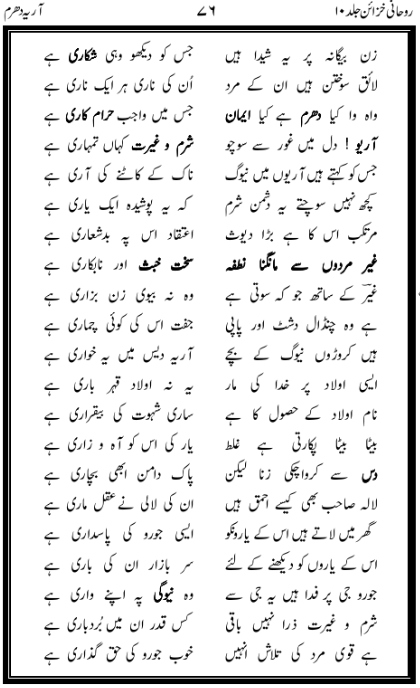 روحانی خزائن جلد ۱۰ ۷۶ آریہ دھرم
زن بیگانہ پر یہ شیدا ہیں جس کو دیکھو وہی شکاری ہے
لائق سوختن ہیں ان کے مرد اُن کی ناری ہر ایک ناری ہے
واہ وا کیا دھرم ہے کیا ایمان جس میں واجب حرام کاری ہے
آریو ! دل میں غور سے سوچو شرم و غیرت کہاں تمہاری ہے
جس کو کہتے ہیں آریوں میں نیوگ ناک کے کاٹنے کی آری ہے
کچھ نہیں سوچتے یہ دشمن شرم کہ یہ پوشیدہ ایک یاری ہے
مرتکب اس کا ہے بڑا دیوث اعتقاد اس پہ بدشعاری ہے
غیر مردوں سے مانگنا نطفہ سخت خبث اور نابکاری ہے
غیر کے ساتھ جو کہ سوتی ہے وہ نہ بیوی زن بزاری ہے
ہے وہ چنڈال دشٹ اور پاپی جفت اس کی کوئی چماری ہے
ہیں کروڑوں نیوگ کے بچے آریہ دیس میں یہ خواری ہے
ایسی اولاد پر خدا کی مار یہ نہ اولاد قہر باری ہے
نام اولاد کے حصول کا ہے ساری شہوت کی بیقراری ہے
بیٹا بیٹا پکارتی ہے غلط یار کی اس کو آہ و زاری ہے
دس سے کروا چکی زنا لیکن پاک دامن ابھی بچاری ہے
لالہ صاحب بھی کیسے احمق ہیں ان کی لالی نے عقل ماری ہے
گھر میں لاتے ہیں اس کے یارونکو ایسی جورو کی پاسداری ہے
اس کے یاروں کو دیکھنے کے لئے سر بازار ان کی باری ہے
جورو جی پر فدا ہیں یہ جی سے وہ نیوگی پہ اپنے واری ہے
شرم و غیرت ذرا نہیں باقی کس قدر ان میں بُردباری ہے
ہے قوی مرد کی تلاش انہیں خوب جورو کی حق گذاری ہے